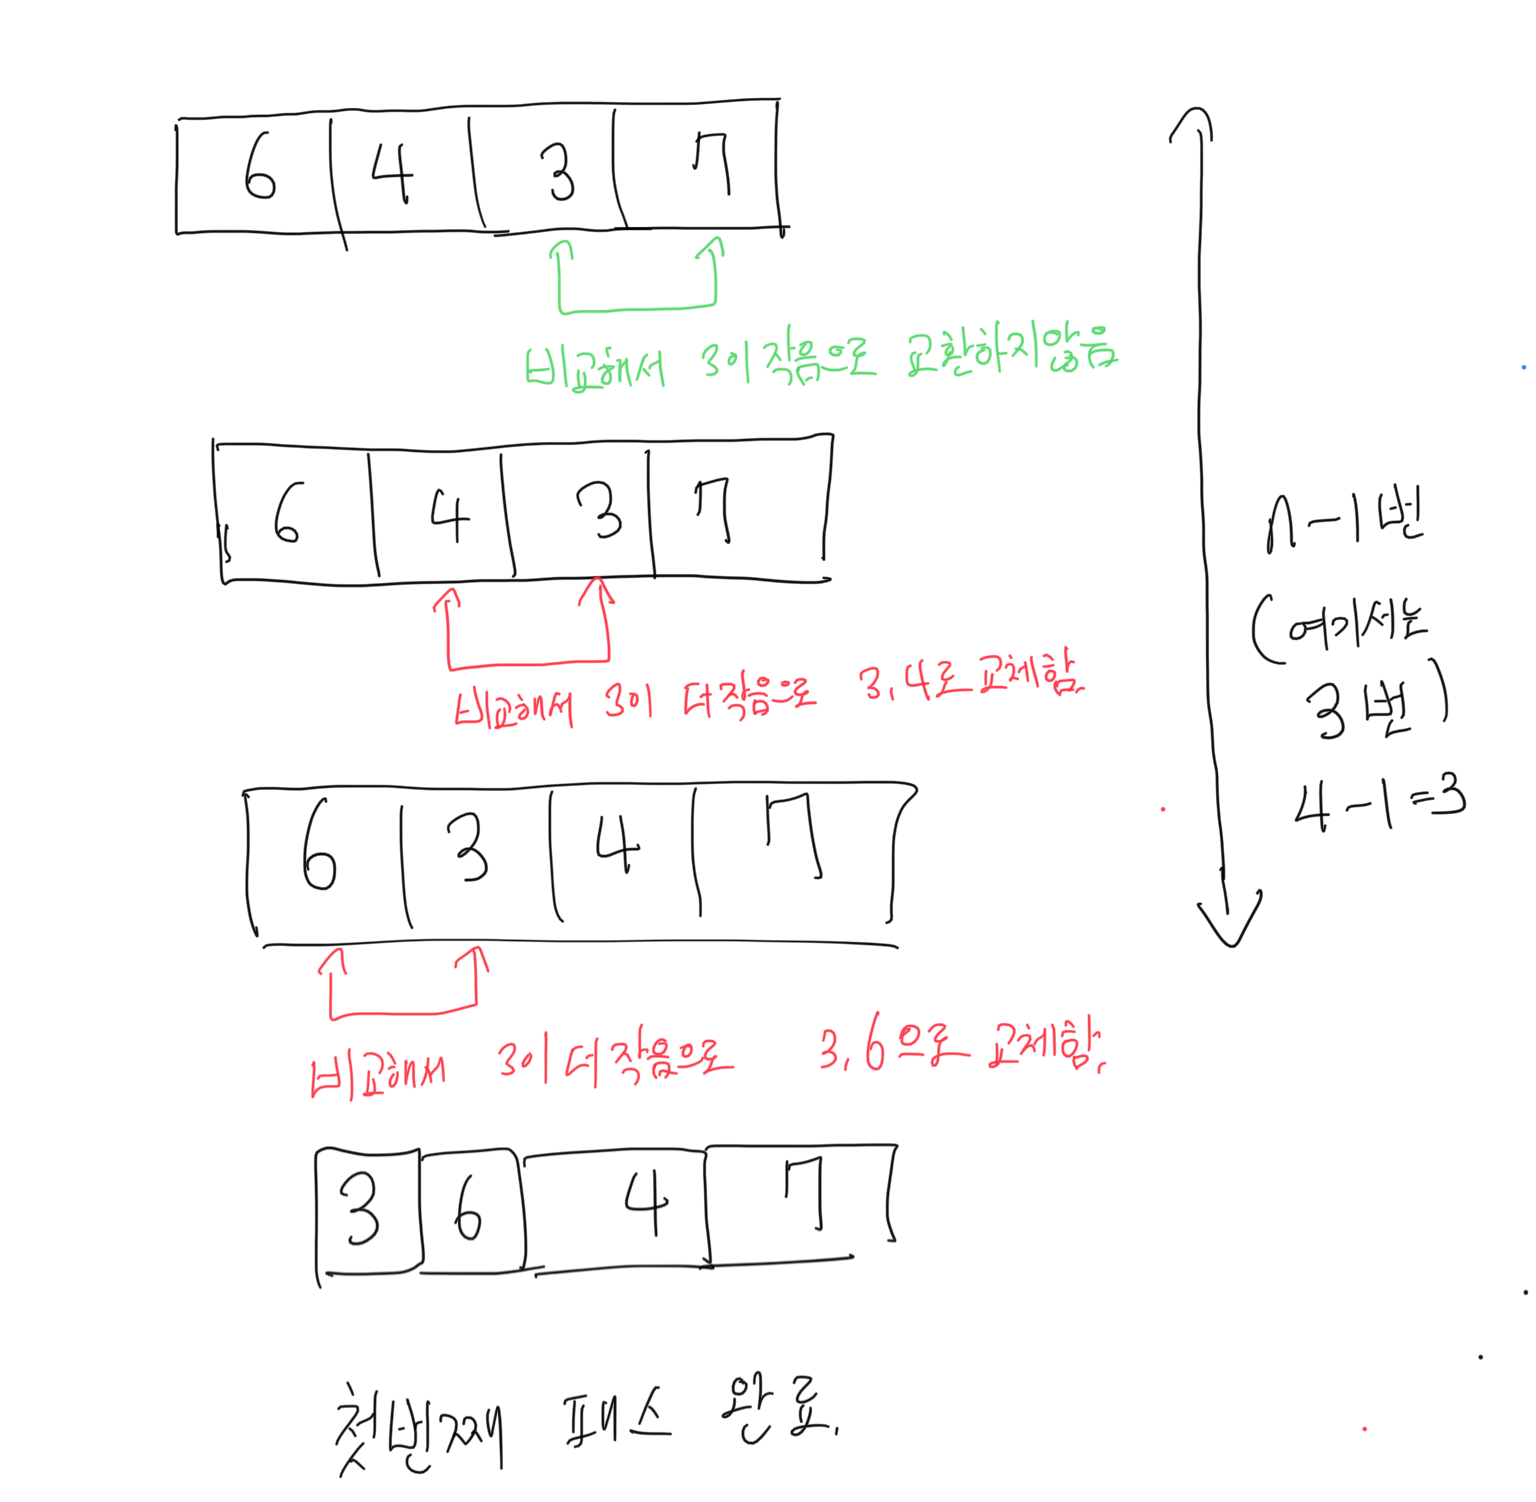 6 4 3 7
비교해서 3이 작음으로 교환하지않음
6 4 3 7
비교해서 3이 더 작음으로 3,4로 교체함.
6 3 4 7
비교해서 3이 더 작음으로 3,6으로 교체함.
3 6 4 7
첫번째 패스 완료.
n-1번
(여기서는
3번)
4-1=3